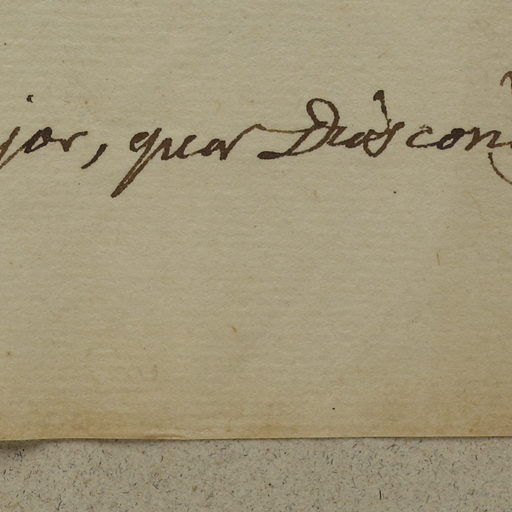 jor, que Dios con